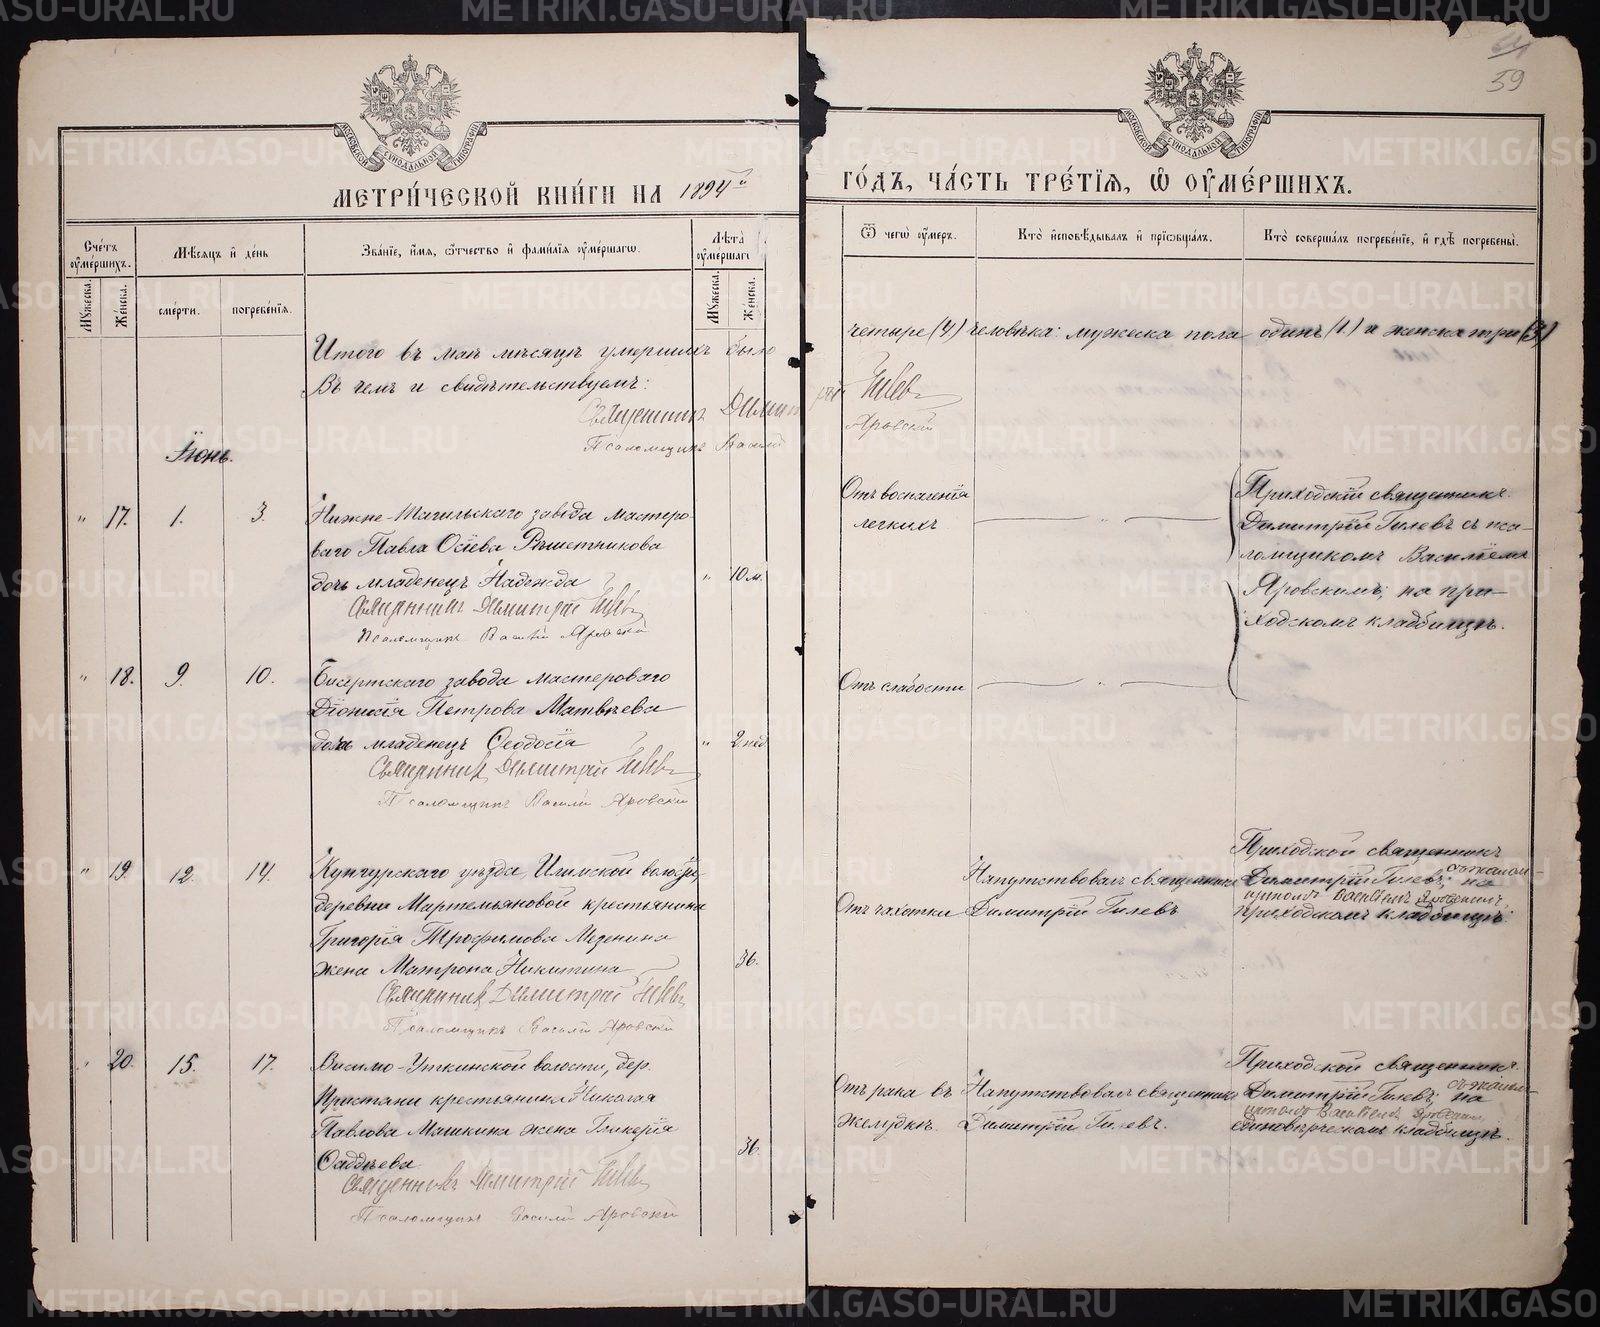 64
59
МОСКОВСКОЙ СѴНОДАЛЬНОЙ ТИПОГРАФІИ
МОСКОВСКОЙ СѴНОДАЛЬНОЙ ТИПОГРАФІИ
МЕТРИ́ЧЕСКОЙ КНИ́ГИ НА 1894й
ГО́ДЪ, ЧА́СТЬ ТРЕ́ТІѦ, Ѡ҆ ОУ҆МЕ́РШИХЪ.
Сче́тъ оу҆ме́ршихъ.
Мꙋжеска.
Же́нска.
Мѣ́сяцъ и҆ де́нь
сме́рти.
погребе́нїѧ.
Зва́нїе, и҆́мѧ, ѻ҆́тчество и҆ фами́лїѧ оу҆ме́ршагѡ.
Лѣ́та оу҆ме́ршаг
Мꙋжеска.
Же́нска.
Ѿ чегѡ̀ оу҆́меръ.
Кто̀ и҆сповѣ́дывалъ и҆ прїѡбща́лъ.
Кто̀ соверша́лъ погребе́нїе, и҆ гдѣ̀ погребены̀.
Итого въ маѣ мѣсяцѣ умершихъ было четыре (4) человѣка: мужеска пола одинъ (1) и женска три (3)
Въ чемъ и свидѣтельствуемъ:
Священникъ Димитрій Гилевъ
Псаломщикъ Василій Яровскій
Іюнь.
" 17. 1. 3. Нижне-Тагильскаго завода мастеро-
ваго Павла Осіева Рѣшетникова
дочь младенецъ Надежда " 10 м.
Священникъ Димитрій Гилевъ
Псаломщикъ Василій Яровскій
Отъ воспаленія
легкихъ "
Приходскій священникъ
Димитрій Гилевъ съ пса-
ломщикомъ Василіемъ
Яровскимъ; на при-
ходскомъ кладбищѣ.
" 18. 9. 10. Бисертскаго завода мастероваго
Діонисія Петрова Матвѣева
дочь младенецъ Ѳеодосія " 2 нед.
Священникъ Димитрій Гилевъ
Псаломщикъ Василій Яровскій
Отъ слабости "
" 19. 12. 14. Кунгурскаго уѣзда, Илимской волости,
деревни Мартемьяновой крестьянина
Григорія Трофимова Мезенина
жена Матрона Никитина 36.
Священникъ Димитрій Гилевъ
Псаломщикъ Василій Яровскій
Отъ чахотки
Напутствовалъ священникъ
Димитрій Гилевъ
Приходской священникъ
Димитрій Гилевъ; съ псалом-
щикомъ Василіемъ Яровскимъ, на
приходскомъ кладбищѣ.
" 20. 15. 17. Висимо-Уткинской волости, дер.
Пристани крестьянина Николая
Павлова Машкина жена Гликерія
Ѳаддѣева 36.
Священникъ Димитрій Гилевъ
Псаломщикъ Василій Яровскій
Отъ рака въ
желудкѣ.
Напутствовалъ священникъ
Димитрій Гилевъ.
Приходской священникъ
Димитрій Гилевъ; съ псалом-
щикомъ Василіемъ Яровскимъ, на
единовѣрческомъ кладбищѣ.
METRIKI.GASO-URAL.RU